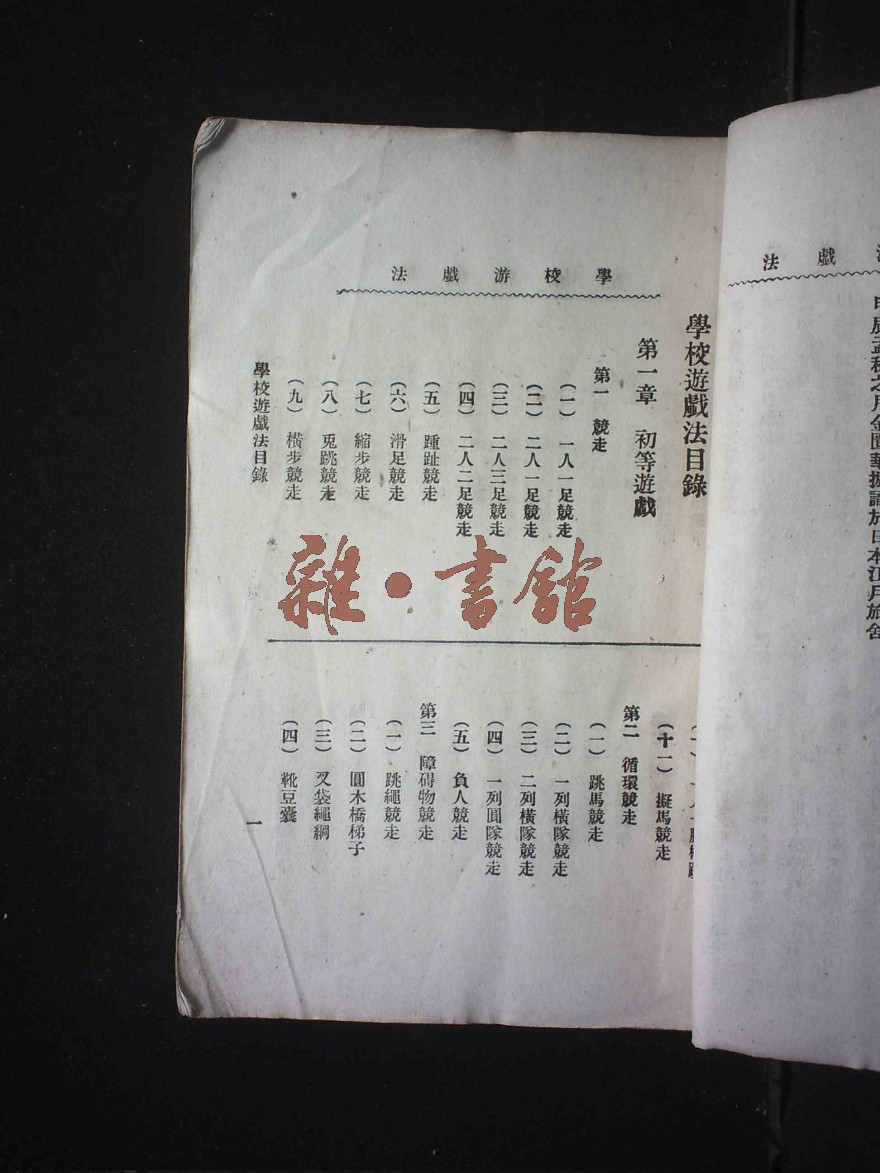 學校游戲法
學校遊戲法目錄
第一章　初等遊戲
第一　競走
（一）　一人一足競走
（二）　二人一足競走
（三）　二人三足競走
（四）　二人二足競走
（五）　踵趾競走
（六）　滑足競走
（七）　縮步競走
（八）　兎跳競走
（九）　橫步競走
（十一）　擬馬競走
第二　循環競走
（一）　跳馬競走
（二）　一列橫隊競走
（三）　二列橫隊競走
（四）　一列圓隊競走
（五）　負人競走
第三　障碍物競走
（一）　跳繩競走
（二）　圓木橋梯子
（三）　叉袋繩網
（四）　靴豆囊
學校遊戲法目錄
一
雜·書館
戲法